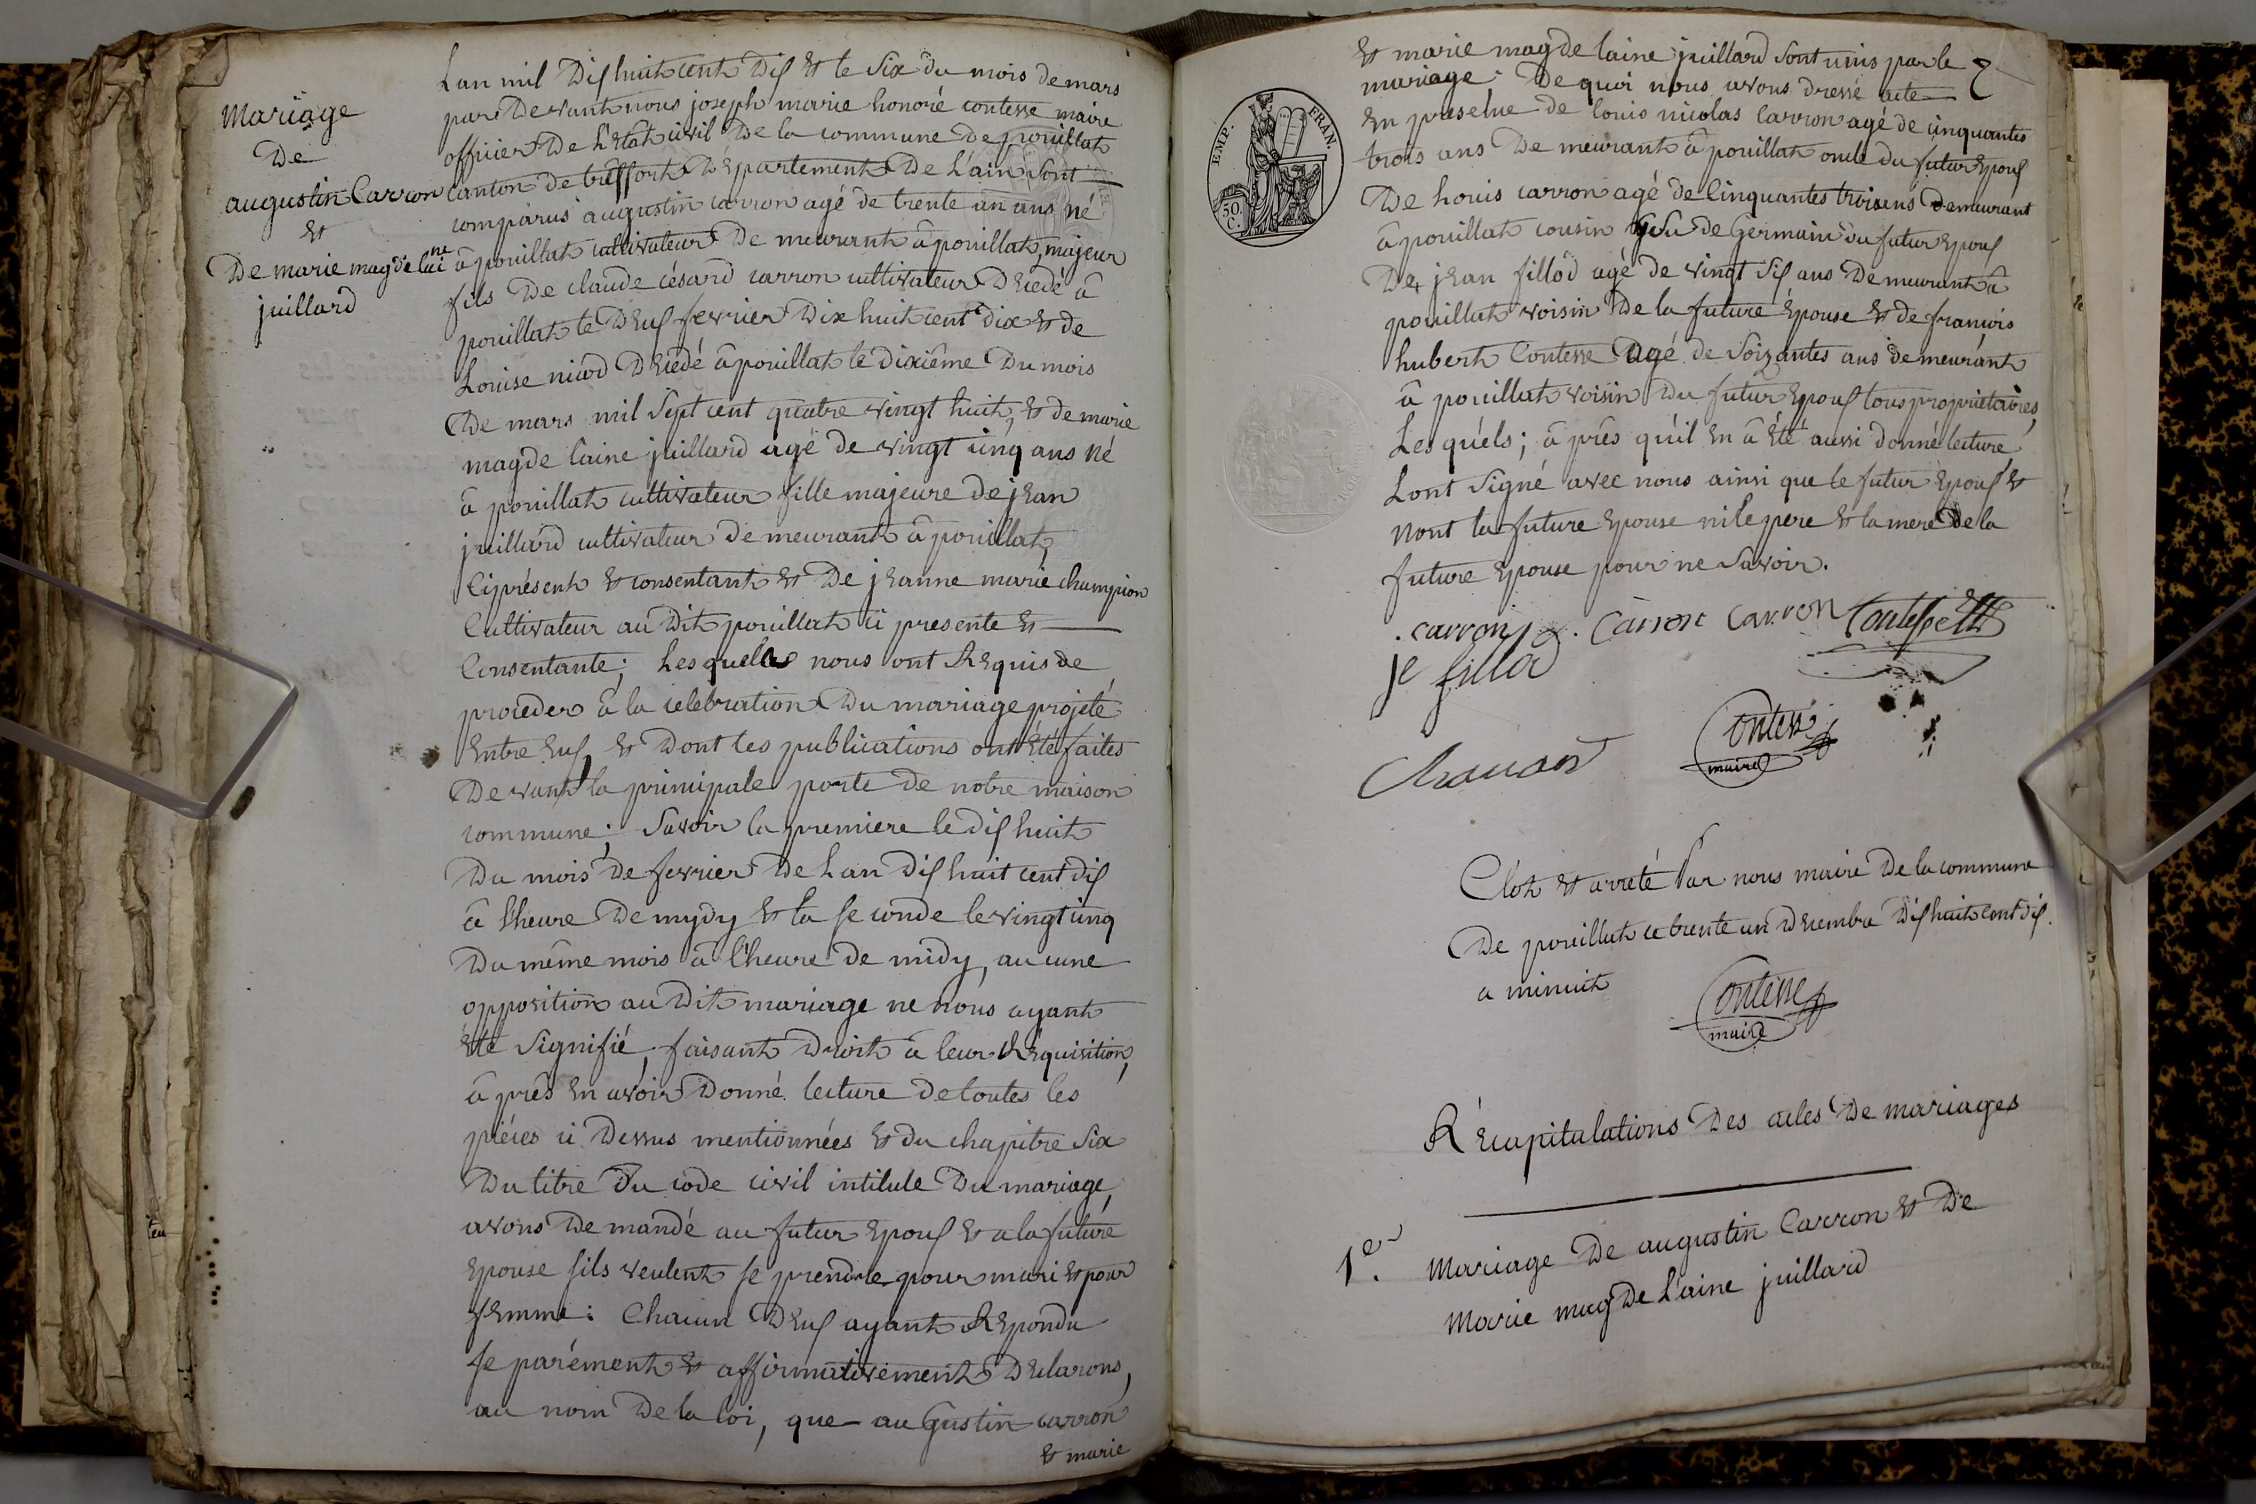 Mariage
De
augustin Carron
Et
De marie magdelaine
juillard
Lan mil Dishuit cent Dis Et le Six du mois de mars
par Devant nous joseph marie honoré contesse maire
officier De l'Etat civil De la commune De pouillat
canton de treffort Département De L'ain Sont
comparus augustin carron agé de trente un ans né
â pouillat cultivateur De meurant â pouillat, majeur
fils De claude césard carron cultivateur Décédé â
pouillat le Deus fevrier Dix huit cent dix Et de
Louise nicod Décédé â pouillat le dixiême Du mois
De mars mil Sept cent quatre vingt huit, Et de marie
magde laine juillard agé de vingt cinq ans né
â pouillat cultivateur fille majeure de jean
juillard cultivateur De meurant â pouillat,
Ciprésent Et consentant Et De jeanne marie champion
Cultivateur au Dit pouillat ci presente Et
Consentante; Lesquels nous ont Requis de
proceder â la celebration Du mariage projeté
Entre Eus, Et Dont les publications ont Eté faites
De vant la principale porte de notre maison
commune; Savoir la premiere le dis huit
Du mois de fevrier De Lan dis huit cent dis
â l'heure De mydy Et la se conde le vingt cinq
Du même mois â l'heure de midy, au cune
opposition au Dit mariage ne nous ayant
Eté Signifié, faisant Droit â leur Requisition,
â près En avoir Donné lecture de toutes les
piéces ci Dessus mentionnées Et du chapitre Six
Du titre Du code civil intitule Du mariage,
avons De mandé au futur Epous Et a la future
Epouse sils veulent se prendre pour mari Et pour
femme: Chacun Deus ayant Repondu
se parément Et affirmativement Déclarons,
au nom De la loi, que au Gustin carron
Et marie
Et marie magde laine juillard Sont unis par le
mariage. De quoi nous avons dressé acte
En presence de louis nicolas Carron agé de cinquantes
trois ans De meurant â pouillat oncle du futur Epous
De Louis carron agé de Cinquantes trois ans demeurant
â pouillat cousin de Germain du futur Epous
De jean fillod agé de vingt Sis ans De meurant â
pouillat voisin De la future Épouse Et de francois
hubert Contesse agé de Soizantes ans demeurant
â pouillat voisin Du futur Epous tous propriétaires,
Lesquéls; â prés quil En â Eté aussi donné lecture,
Lont Signé avec nous ainsi que le futur Epous Et
Nont la future Epouse ni le pere Et la mere De la
future Epouse pour ne Savoir.
carron Carron Carron Contesse
je fillod
Contesse
maire
Clos Et arreté Par nous maire De la commune
De pouillat ce trente un Decembre Dishuit cent dis.
a minuit
Contesse
maire
Récapitulations Des actes De mariages
1er. Mariage De augustin Carron Et De
Marie mag De Laine juillard
EMP. FRAN.
50.
C.